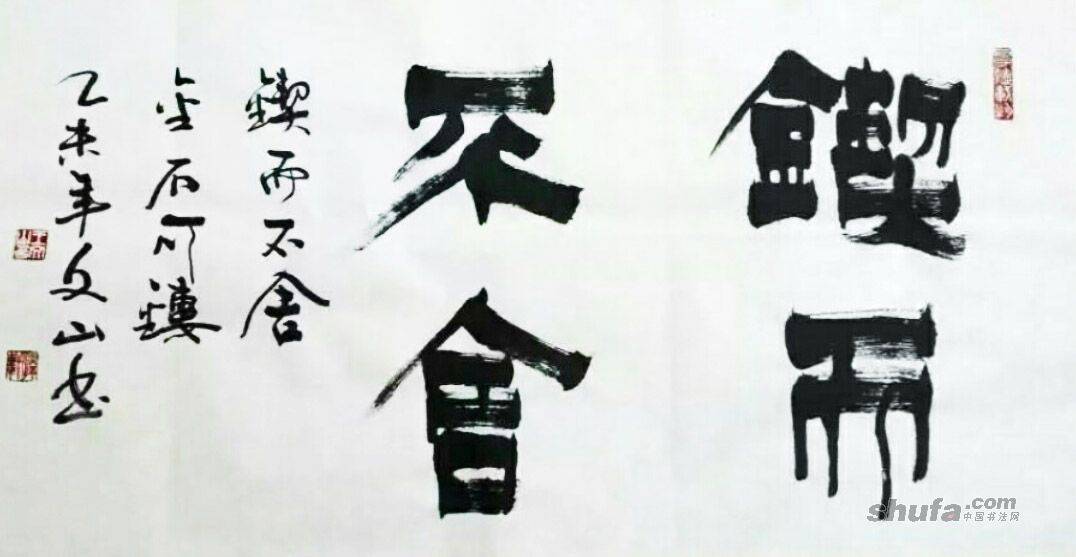 鍥而
不舍
鍥而不舍
金石可鏤
乙未年文山書
shufa.com
中国书法网